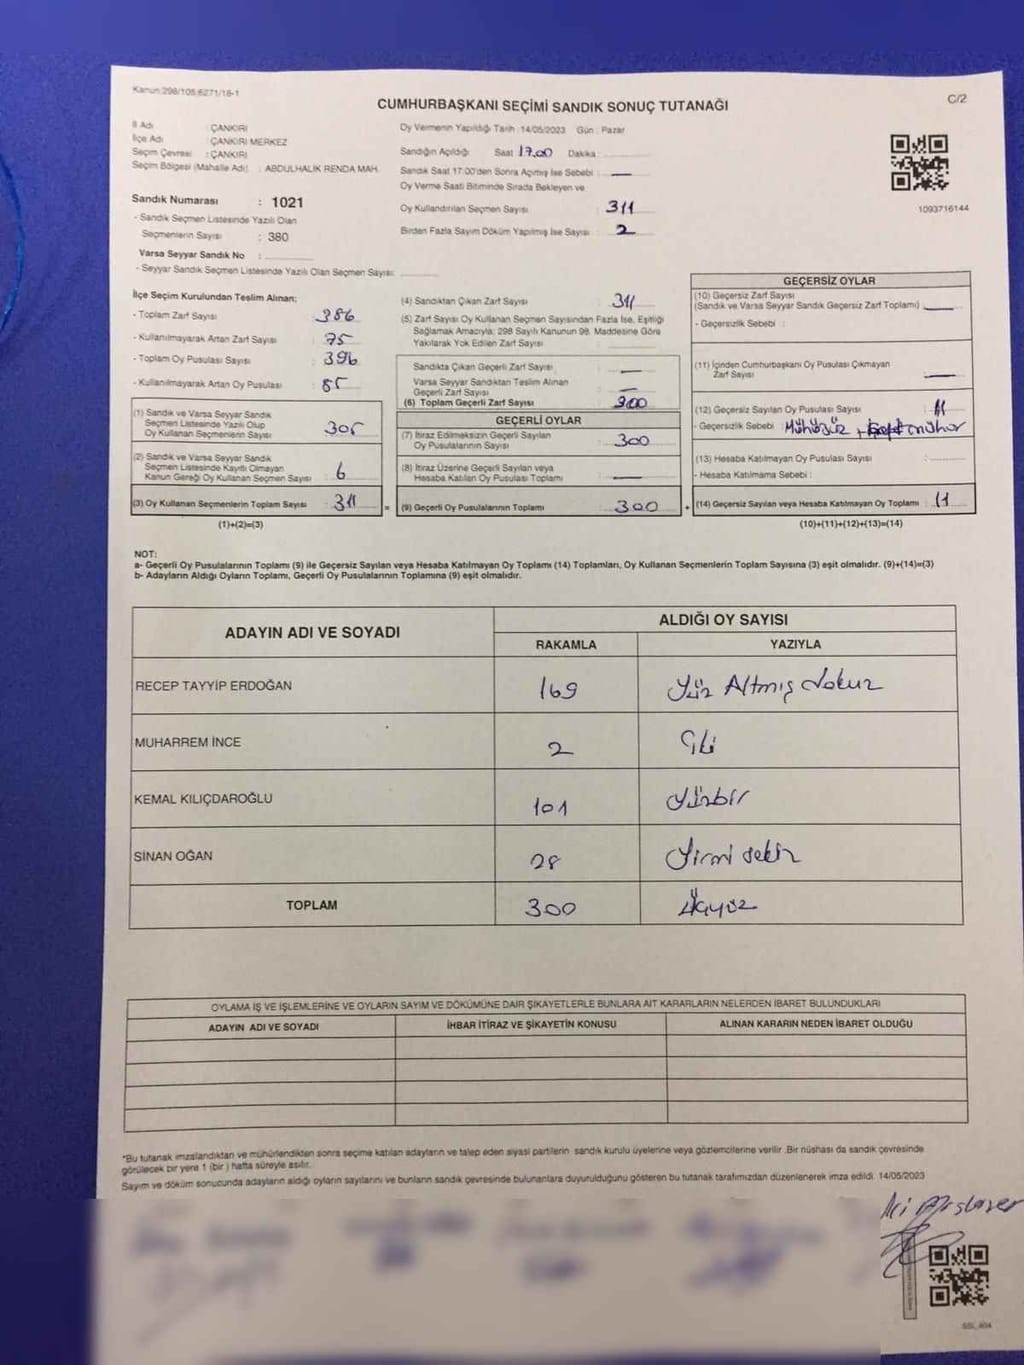 Kanun:298/105;6271/18-1
CUMHURBAŞKANI SEÇİMİ SANDIK SONUÇ TUTANAĞI
C/2
İl Adı : ÇANKIRI
İlçe Adı : ÇANKIRI MERKEZ
Seçim Çevresi : ÇANKIRI
Seçim Bölgesi (Mahalle Adı) : ABDULHALİK RENDA MAH.
Sandık Numarası : 1021
- Sandık Seçmen Listesinde Yazılı Olan
Seçmenlerin Sayısı : 380
Varsa Seyyar Sandık No :
- Seyyar Sandık Seçmen Listesinde Yazılı Olan Seçmen Sayısı:
Oy Vermenin Yapıldığı Tarih :14/05/2023 Gün : Pazar
Sandığın Açıldığı Saat 17.00 Dakika:
Sandık Saat 17.00'den Sonra Açılmış İse Sebebi : —
Oy Verme Saati Bitiminde Sırada Bekleyen ve
Oy Kullandırılan Seçmen Sayısı : 311
Birden Fazla Sayım Döküm Yapılmış İse Sayısı : 2
1093716144
İlçe Seçim Kurulundan Teslim Alınan:
- Toplam Zarf Sayısı : 386
- Kullanılmayarak Artan Zarf Sayısı : 75
- Toplam Oy Pusulası Sayısı : 396
- Kullanılmayarak Artan Oy Pusulası : 85
(1) Sandık ve Varsa Seyyar Sandık
Seçmen Listesinde Yazılı Olup
Oy Kullanan Seçmenlerin Sayısı : 305
(2) Sandık ve Varsa Seyyar Sandık
Seçmen Listesinde Kayıtlı Olmayan
Kanun Gereği Oy Kullanan Seçmen Sayısı : 6
(3) Oy Kullanan Seçmenlerin Toplam Sayısı : 311
(1)+(2)=(3)
(4) Sandıktan Çıkan Zarf Sayısı : 311
(5) Zarf Sayısı Oy Kullanan Seçmen Sayısından Fazla İse, Eşitliği
Sağlamak Amacıyla; 298 Sayılı Kanunun 98. Maddesine Göre
Yakılarak Yok Edilen Zarf Sayısı :
Sandıkta Çıkan Geçerli Zarf Sayısı : —
Varsa Seyyar Sandıktan Teslim Alınan
Geçerli Zarf Sayısı : —
(6) Toplam Geçerli Zarf Sayısı : 300
GEÇERLİ OYLAR
(7) İtiraz Edilmeksizin Geçerli Sayılan
Oy Pusulalarının Sayısı : 300
(8) İtiraz Üzerine Geçerli Sayılan veya
Hesaba Katılan Oy Pusulası Toplamı : —
= (9) Geçerli Oy Pusulalarının Toplamı : 300 +
GEÇERSİZ OYLAR
(10) Geçersiz Zarf Sayısı
(Sandık ve Varsa Seyyar Sandık Geçersiz Zarf Toplamı) : —
- Geçersizlik Sebebi :
(11) İçinden Cumhurbaşkanı Oy Pusulası Çıkmayan
Zarf Sayısı : —
(12) Geçersiz Sayılan Oy Pusulası Sayısı : 11
- Geçersizlik Sebebi : Mühürsüz + mühür
(13) Hesaba Katılmayan Oy Pusulası Sayısı :
- Hesaba Katılmama Sebebi :
(14) Geçersiz Sayılan veya Hesaba Katılmayan Oy Toplamı : 11
(10)+(11)+(12)+(13)=(14)
NOT:
a- Geçerli Oy Pusulalarının Toplamı (9) ile Geçersiz Sayılan veya Hesaba Katılmayan Oy Toplamı (14) Toplamları, Oy Kullanan Seçmenlerin Toplam Sayısına (3) eşit olmalıdır. (9)+(14)=(3)
b- Adayların Aldığı Oyların Toplamı, Geçerli Oy Pusulalarının Toplamına (9) eşit olmalıdır.
ADAYIN ADI VE SOYADI
ALDIĞI OY SAYISI
RAKAMLA YAZIYLA
RECEP TAYYİP ERDOĞAN 169 Yüz Altmış dokuz
MUHARREM İNCE 2 İki
KEMAL KILIÇDAROĞLU 101 Yüzbir
SİNAN OĞAN 28 Yirmi sekiz
TOPLAM 300 Üçyüz
OYLAMA İŞ VE İŞLEMLERİNE VE OYLARIN SAYIM VE DÖKÜMÜNE DAİR ŞİKAYETLERLE BUNLARA AİT KARARLARIN NELERDEN İBARET BULUNDUKLARI
ADAYIN ADI VE SOYADI İHBAR İTİRAZ VE ŞİKAYETİN KONUSU ALINAN KARARIN NEDEN İBARET OLDUĞU
*Bu tutanak imzalandıktan ve mühürlendikten sonra seçime katılan adayların ve talep eden siyasi partilerin sandık kurulu üyelerine veya gözlemcilerine verilir. Bir nüshası da sandık çevresinde
görülecek bir yere 1 (bir) hafta süreyle asılır.
Sayım ve döküm sonucunda adayların aldığı oyların sayılarını ve bunların sandık çevresinde bulunanlara duyurulduğunu gösteren bu tutanak tarafımızdan düzenlenerek imza edildi. 14/05/2023